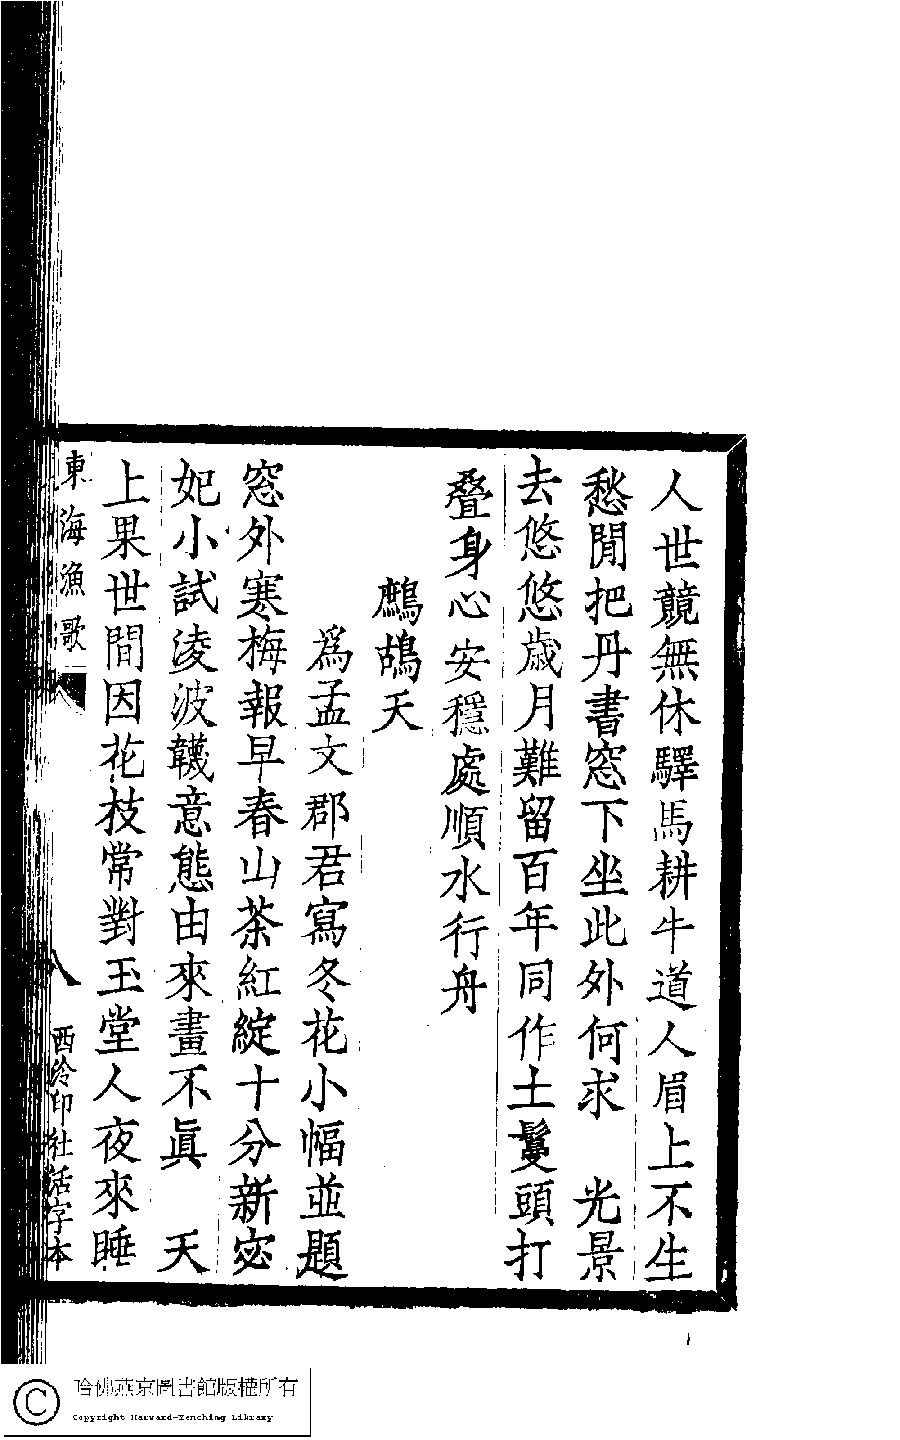 人世競無休驛馬耕牛道人眉上不生
愁閒把丹書窓下坐此外何求　光景
去悠悠歳月難留百年同作土鬘頭打
疊身心安穩處順水行舟
鷓鴣天
爲孟文郡君寫冬花小幅並題
窓外寒梅報早春山茶紅綻十分新宓
妃小試淩波韈意態由來畫不眞　天
上果世間因花枝常對玉堂人夜來睡
東海漁歌
八
西泠印社活字本
哈佛燕京圖書館版權所有
Copyright Harvard-Yenching Library